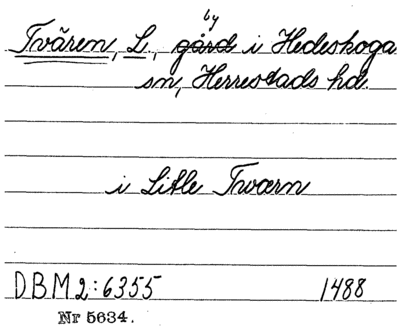 by
Tvären, L., gård i Hedeskoga
sn, Herrestads hd.
i Litle Tworn
DBM 2:6355 1488
Nr 5634.